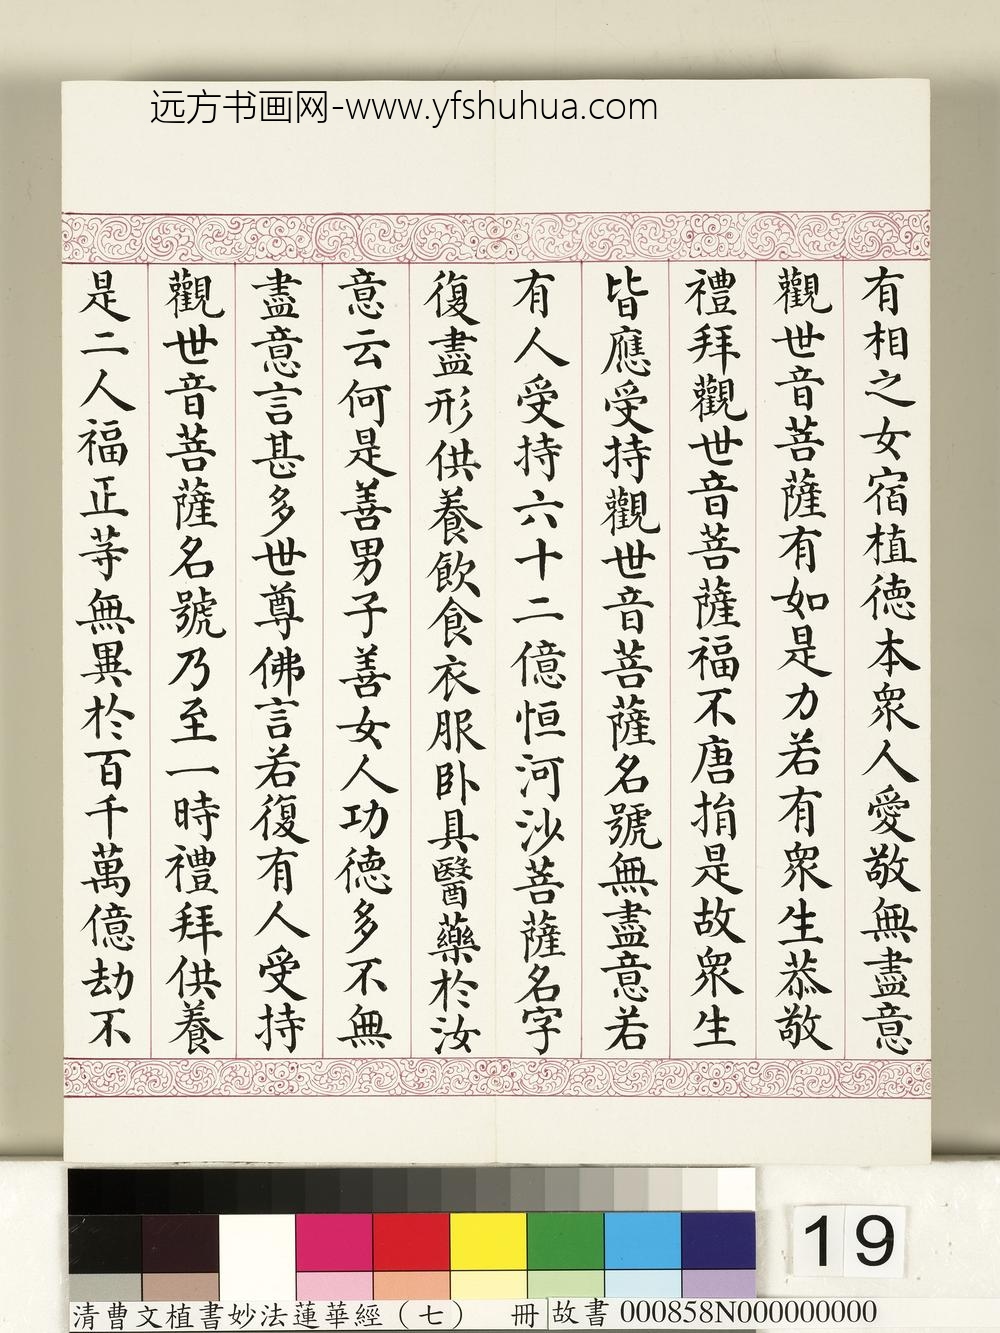 远方书画网-www.yfshuhua.com
有相之女宿植德本衆人愛敬無盡意
觀世音菩薩有如是力若有衆生恭敬
禮拜觀世音菩薩福不唐捐是故衆生
皆應受持觀世音菩薩名號無盡意若
有人受持六十二億恒河沙菩薩名字
復盡形供養飲食衣服卧具醫藥於汝
意云何是善男子善女人功德多不無
盡意言甚多世尊佛言若復有人受持
觀世音菩薩名號乃至一時禮拜供養
是二人福正等無異於百千萬億劫不
19
清曹文植書妙法蓮華經（七） 冊 故書 000858N000000000